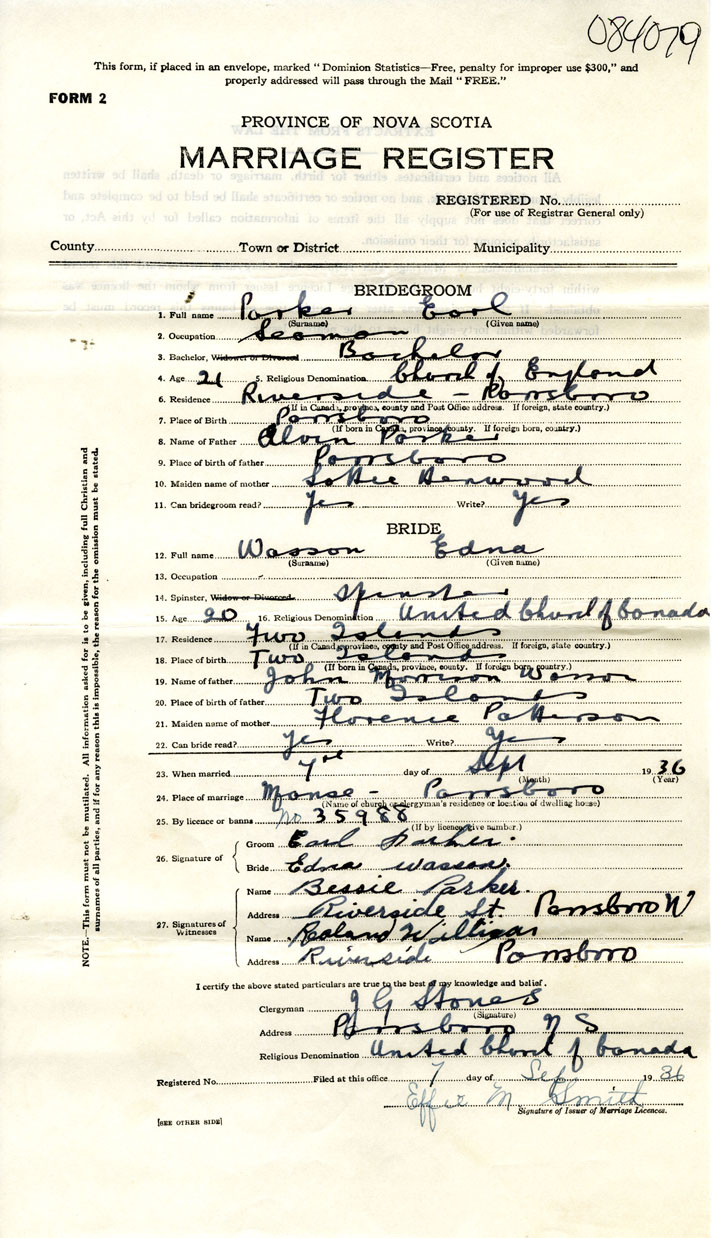 084079
This form, if placed in an envelope, marked "Dominion Statistics—Free, penalty for improper use $300," and
properly addressed will pass through the Mail "FREE."
FORM 2
PROVINCE OF NOVA SCOTIA
MARRIAGE REGISTER
REGISTERED No.
(For use of Registrar General only)
County Town or District Municipality
BRIDEGROOM
1. Full name Parker Earl
(Surname) (Given name)
2. Occupation Seaman
3. Bachelor, Widower or Divorced Bachelor
4. Age 21 5. Religious Denomination Church of England
6. Residence Riverside - Parrsboro
(If in Canada, province, county and Post Office address. If foreign, state country.)
7. Place of Birth Parrsboro
(If born in Canada, province, county. If foreign born, country.)
8. Name of Father Alvin Parker
9. Place of birth of father Parrsboro
10. Maiden name of mother Lottie Henwood
11. Can bridegroom read? Yes Write? Yes
BRIDE
12. Full name Wasson Edna
(Surname) (Given name)
13. Occupation
14. Spinster, Widow or Divorced. Spinster
15. Age 20 16. Religious Denomination United Church of Canada
17. Residence Two Islands
(If in Canada, province, county and Post Office address. If foreign, state country.)
18. Place of birth Two Islands
(If born in Canada, province, county. If foreign born, country.)
19. Name of father John Morrison Wasson
20. Place of birth of father Two Islands
21. Maiden name of mother Florence Patterson
22. Can bride read? Yes Write? Yes
23. When married 7 day of Sept 1936
(Month) (Year)
24. Place of marriage Manse - Parrsboro
(Name of church or clergyman's residence or location of dwelling house)
25. By licence or banns no 35988
(If by licence, give number.)
26. Signature of
Groom Earl Parker.
Bride Edna Wasson.
27. Signatures of Witnesses
Name Bessie Parker.
Address Riverside St. Parrsboro W
Name Roland Willigar
Address Riverside Parrsboro
I certify the above stated particulars are true to the best of my knowledge and belief.
Clergyman J G Stones
(Signature)
Address Parrsboro N S
Religious Denomination United Church of Canada
Registered No. Filed at this office 7 day of Sep 1936
Effie M Smith
Signature of Issuer of Marriage Licences.
[SEE OTHER SIDE]
NOTE.—This form must not be mutilated. All information asked for is to be given, including full Christian and
surnames of all parties, and if for any reason this is impossible, the reason for the omission must be stated.